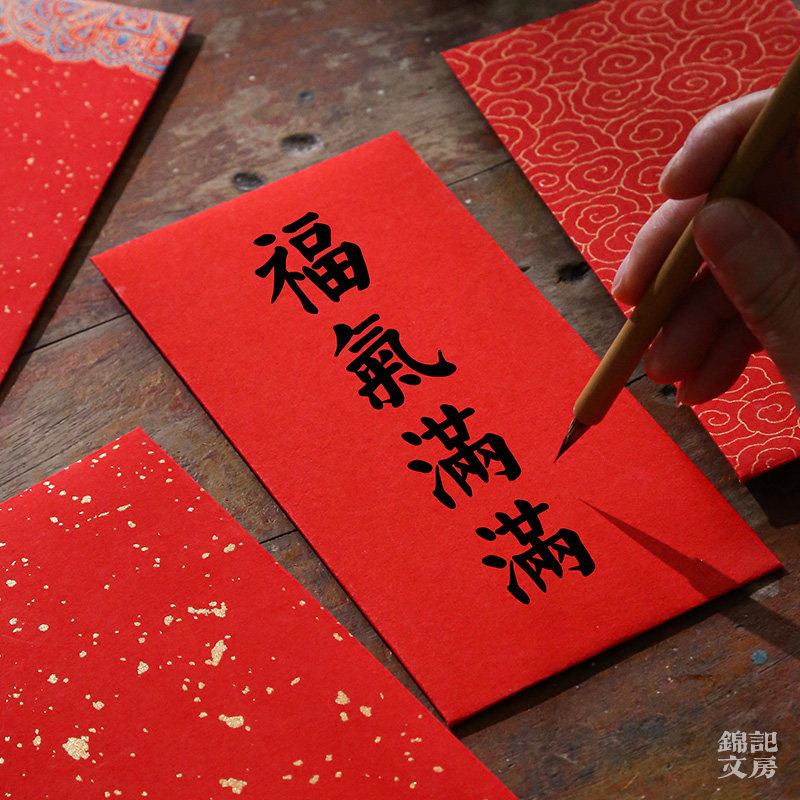 福氣滿滿
錦記
文房